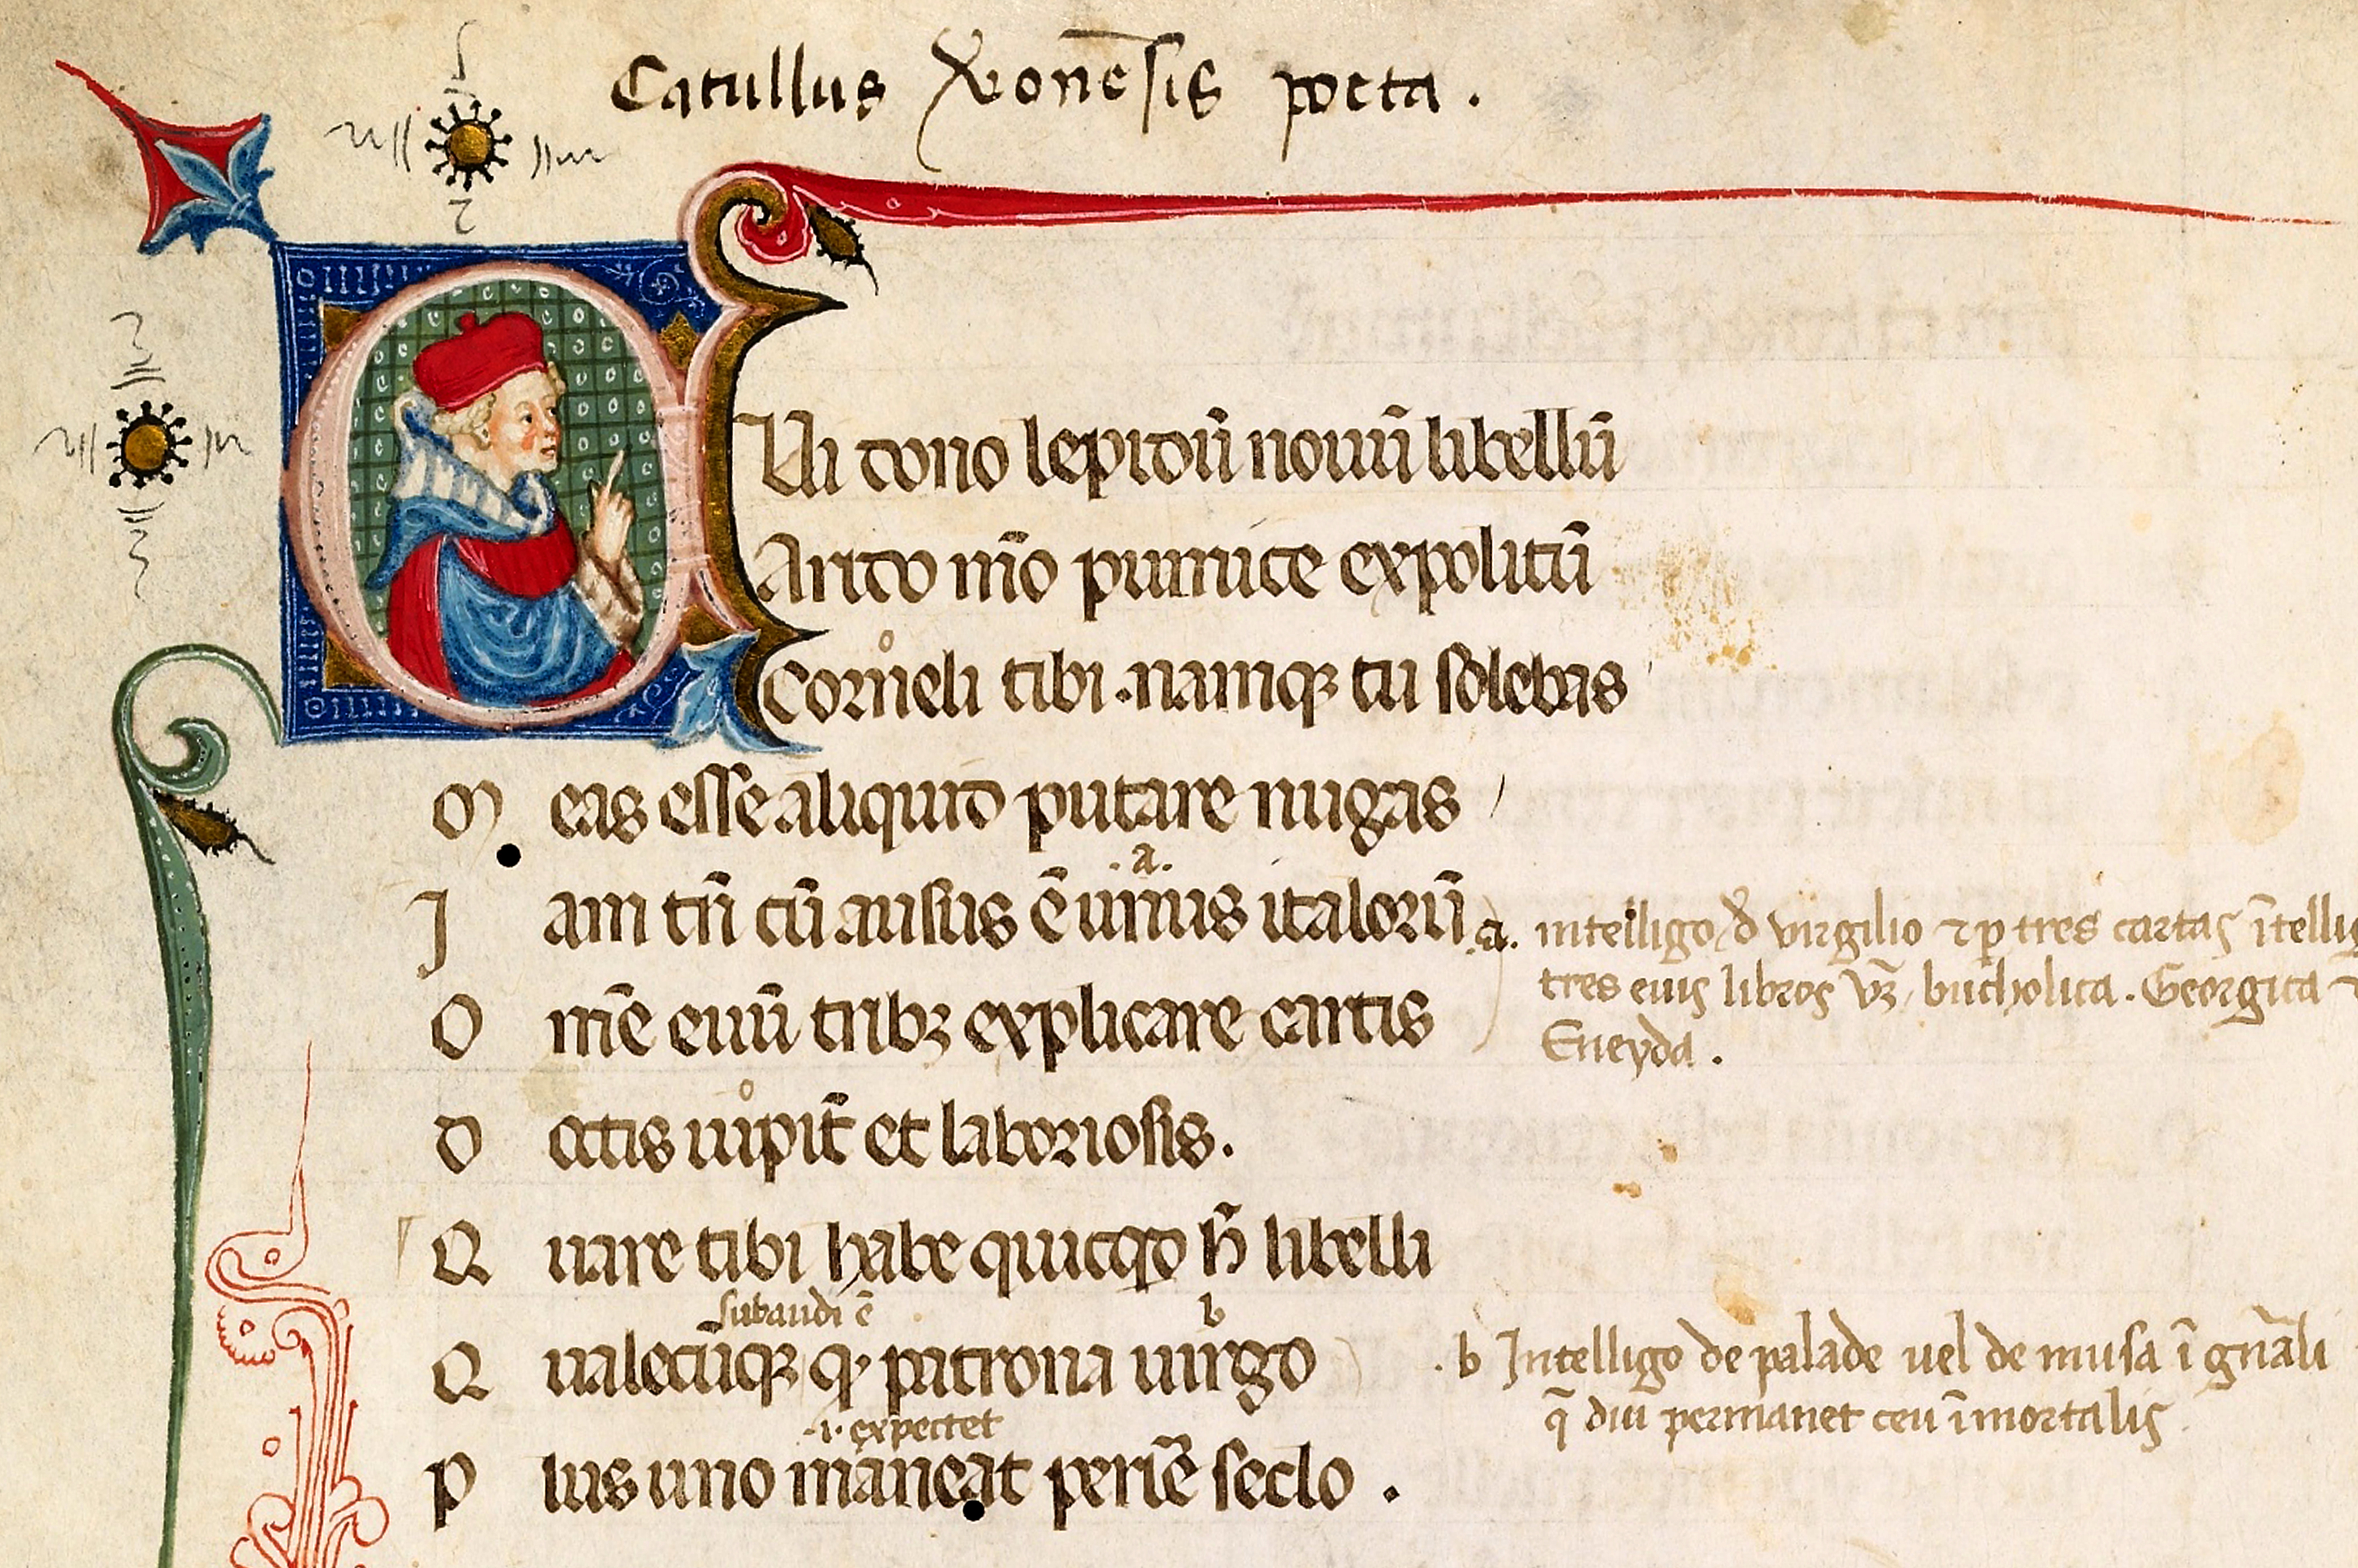 Catullus Veronēsis poeta .
QVi dono lepidū nouū libellū
Arido mō pumice expolitū
Corneli tibi . namqꝫ tu solebas
M eas esse aliquid putare nugas
.a.
J am tn̄ cū ausus ē unus italorū
.a. intelligo d̄ virgilio ⁊ ꝑ tres cartas ītellig
tres eius libros vꝫ bucholica . Georgica ⁊
Eneyda .
O m̄e euū tribꝫ explicare cartis
D octis iupit̄ et laboriosis .
Q uare tibi habe quicqd h̄ libelli
subaudi ē b
Q ualecūqꝫ qͥ patrona uirgo
. b Intelligo de palade uel de musa ī gn̄ali
q̄ diu permanet ceu īmortalis
.i. expectet
P lus uno maneat periē seclo .